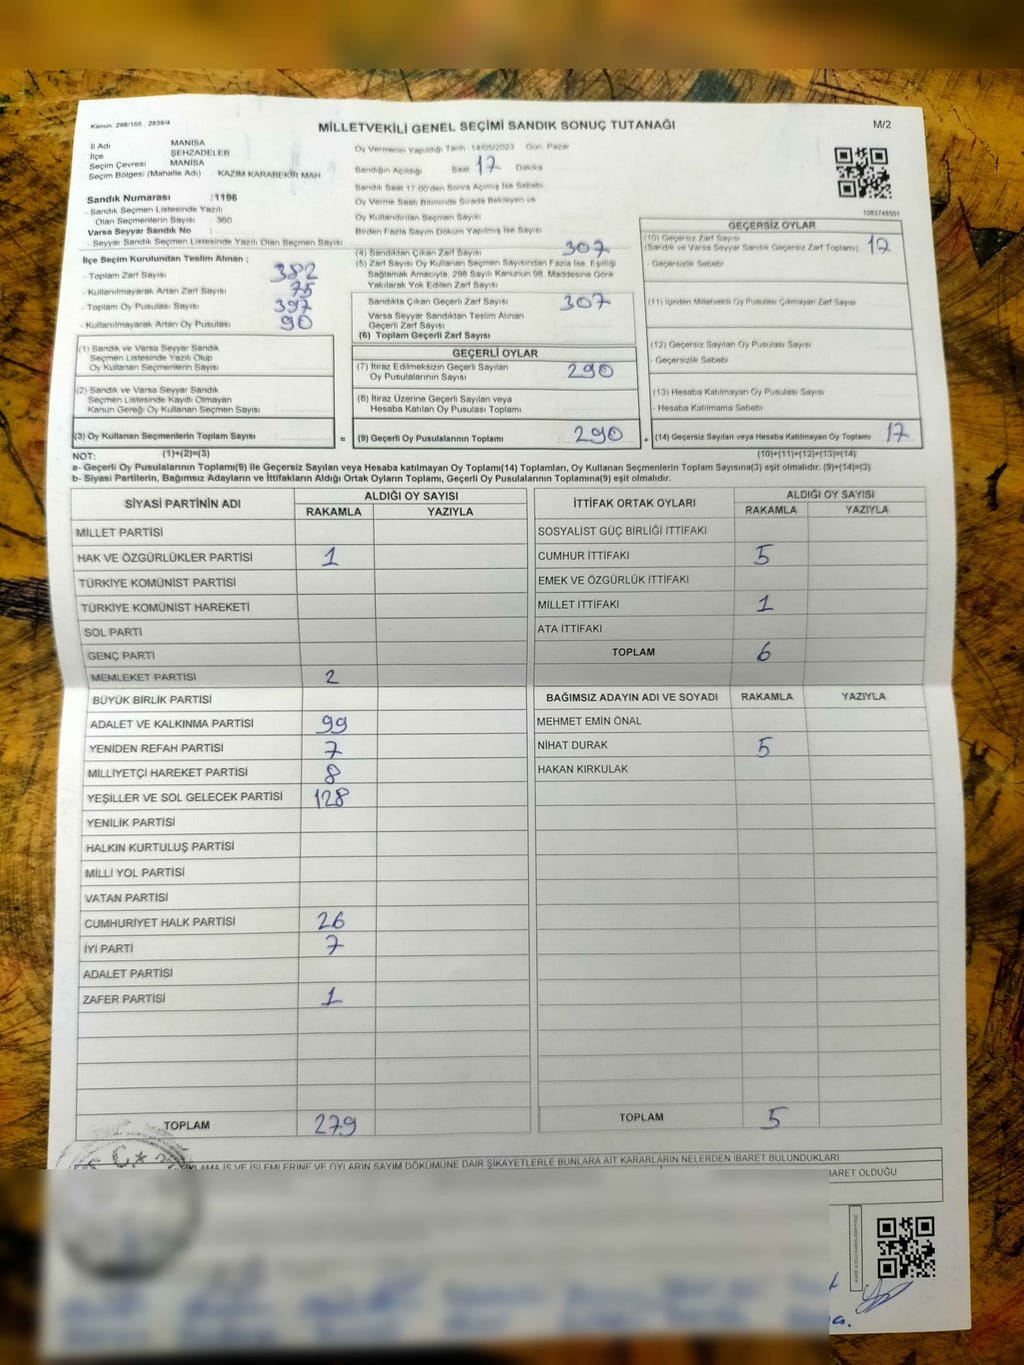 Kanun: 298/105 2839/4
MİLLETVEKİLİ GENEL SEÇİMİ SANDIK SONUÇ TUTANAĞI
M/2
İl Adı MANİSA
İlçe ŞEHZADELER
Seçim Çevresi MANİSA
Seçim Bölgesi (Mahalle Adı) KAZIM KARABEKİR MAH
Sandık Numarası :1196
- Sandık Seçmen Listesinde Yazılı
Olan Seçmenlerin Sayısı 360
Varsa Seyyar Sandık No :
- Seyyar Sandık Seçmen Listesinde Yazılı Olan Seçmen Sayısı
İlçe Seçim Kurulundan Teslim Alınan ;
- Toplam Zarf Sayısı 382
- Kullanılmayarak Artan Zarf Sayısı 75
- Toplam Oy Pusulası Sayısı 397
- Kullanılmayarak Artan Oy Pusulası 90
(1) Sandık ve Varsa Seyyar Sandık
Seçmen Listesinde Yazılı Olup
Oy Kullanan Seçmenlerin Sayısı
(2) Sandık ve Varsa Seyyar Sandık
Seçmen Listesinde Kayıtlı Olmayan
Kanun Gereği Oy Kullanan Seçmen Sayısı
(3) Oy Kullanan Seçmenlerin Toplam Sayısı =
Oy Vermenin Yapıldığı Tarih 14/05/2023 Gün Pazar
Sandığın Açıldığı Saat 17 Dakika
Sandık Saat 17.00'den Sonra Açılmış İse Sebebi
Oy Verme Saati Bitiminde Sırada Bekleyen ve
Oy Kullandırılan Seçmen Sayısı
Birden Fazla Sayım Döküm Yapılmış İse Sayısı
(4) Sandıktan Çıkan Zarf Sayısı 307
(5) Zarf Sayısı Oy Kullanan Seçmen Sayısından Fazla İse, Eşitliği
Sağlamak Amacıyla, 298 Sayılı Kanunun 98. Maddesine Göre
Yakılarak Yok Edilen Zarf Sayısı
Sandıkta Çıkan Geçerli Zarf Sayısı 307
Varsa Seyyar Sandıktan Teslim Alınan
Geçerli Zarf Sayısı
(6) Toplam Geçerli Zarf Sayısı
GEÇERLİ OYLAR
(7) İtiraz Edilmeksizin Geçerli Sayılan
Oy Pusulalarının Sayısı 290
(8) İtiraz Üzerine Geçerli Sayılan veya
Hesaba Katılan Oy Pusulası Toplamı
(9) Geçerli Oy Pusulalarının Toplamı 290 +
1083746501
GEÇERSİZ OYLAR
(10) Geçersiz Zarf Sayısı
(Sandık ve Varsa Seyyar Sandık Geçersiz Zarf Toplamı) 17
- Geçersizlik Sebebi
(11) İçinden Milletvekili Oy Pusulası Çıkmayan Zarf Sayısı
(12) Geçersiz Sayılan Oy Pusulası Sayısı
- Geçersizlik Sebebi
(13) Hesaba Katılmayan Oy Pusulası Sayısı
- Hesaba Katılmama Sebebi
(14) Geçersiz Sayılan veya Hesaba Katılmayan Oy Toplamı 17
NOT: (1)+(2)=(3) (10)+(11)+(12)+(13)=(14)
a- Geçerli Oy Pusulalarının Toplamı(9) ile Geçersiz Sayılan veya Hesaba katılmayan Oy Toplamı(14) Toplamları, Oy Kullanan Seçmenlerin Toplam Sayısına(3) eşit olmalıdır. (9)+(14)=(3)
b- Siyasi Partilerin, Bağımsız Adayların ve İttifakların Aldığı Ortak Oyların Toplamı, Geçerli Oy Pusulalarının Toplamına(9) eşit olmalıdır.
SİYASİ PARTİNİN ADI ALDIĞI OY SAYISI
RAKAMLA YAZIYLA
MİLLET PARTİSİ
HAK VE ÖZGÜRLÜKLER PARTİSİ 1
TÜRKİYE KOMÜNİST PARTİSİ
TÜRKİYE KOMÜNİST HAREKETİ
SOL PARTİ
GENÇ PARTİ
MEMLEKET PARTİSİ 2
BÜYÜK BİRLİK PARTİSİ
ADALET VE KALKINMA PARTİSİ 99
YENİDEN REFAH PARTİSİ 7
MİLLİYETÇİ HAREKET PARTİSİ 8
YEŞİLLER VE SOL GELECEK PARTİSİ 128
YENİLİK PARTİSİ
HALKIN KURTULUŞ PARTİSİ
MİLLİ YOL PARTİSİ
VATAN PARTİSİ
CUMHURİYET HALK PARTİSİ 26
İYİ PARTİ 7
ADALET PARTİSİ
ZAFER PARTİSİ 1
TOPLAM 279
İTTİFAK ORTAK OYLARI ALDIĞI OY SAYISI
RAKAMLA YAZIYLA
SOSYALİST GÜÇ BİRLİĞİ İTTİFAKI
CUMHUR İTTİFAKI 5
EMEK VE ÖZGÜRLÜK İTTİFAKI
MİLLET İTTİFAKI 1
ATA İTTİFAKI
TOPLAM 6
BAĞIMSIZ ADAYIN ADI VE SOYADI RAKAMLA YAZIYLA
MEHMET EMİN ÖNAL
NİHAT DURAK 5
HAKAN KIRKULAK
TOPLAM 5
İŞ VE İŞLEMLERİNE VE OYLARIN SAYIM DÖKÜMÜNE DAİR ŞİKAYETLERLE BUNLARA AİT KARARLARIN NELERDEN İBARET BULUNDUKLARI
OLDUĞU